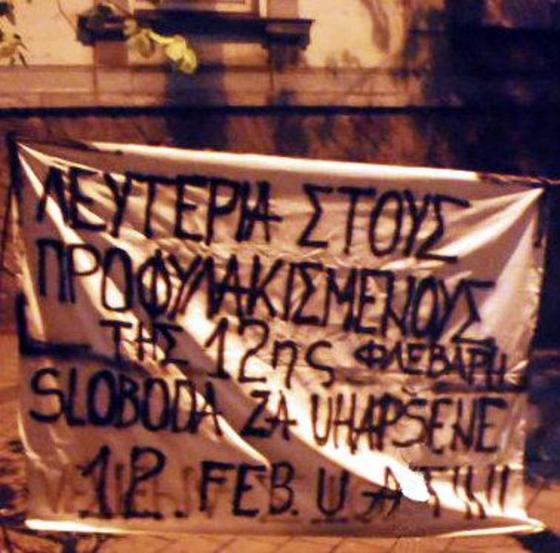 ΛΕΥΤΕΡΙΑ ΣΤΟΥΣ
ΠΡΟΦΥΛΑΚΙΣΜΕΝΟΥΣ
ΤΗΣ 12ης ΦΛΕΒΑΡΗ
SLOBODA ZA UHAPŠENE
12. FEB. U ATINI